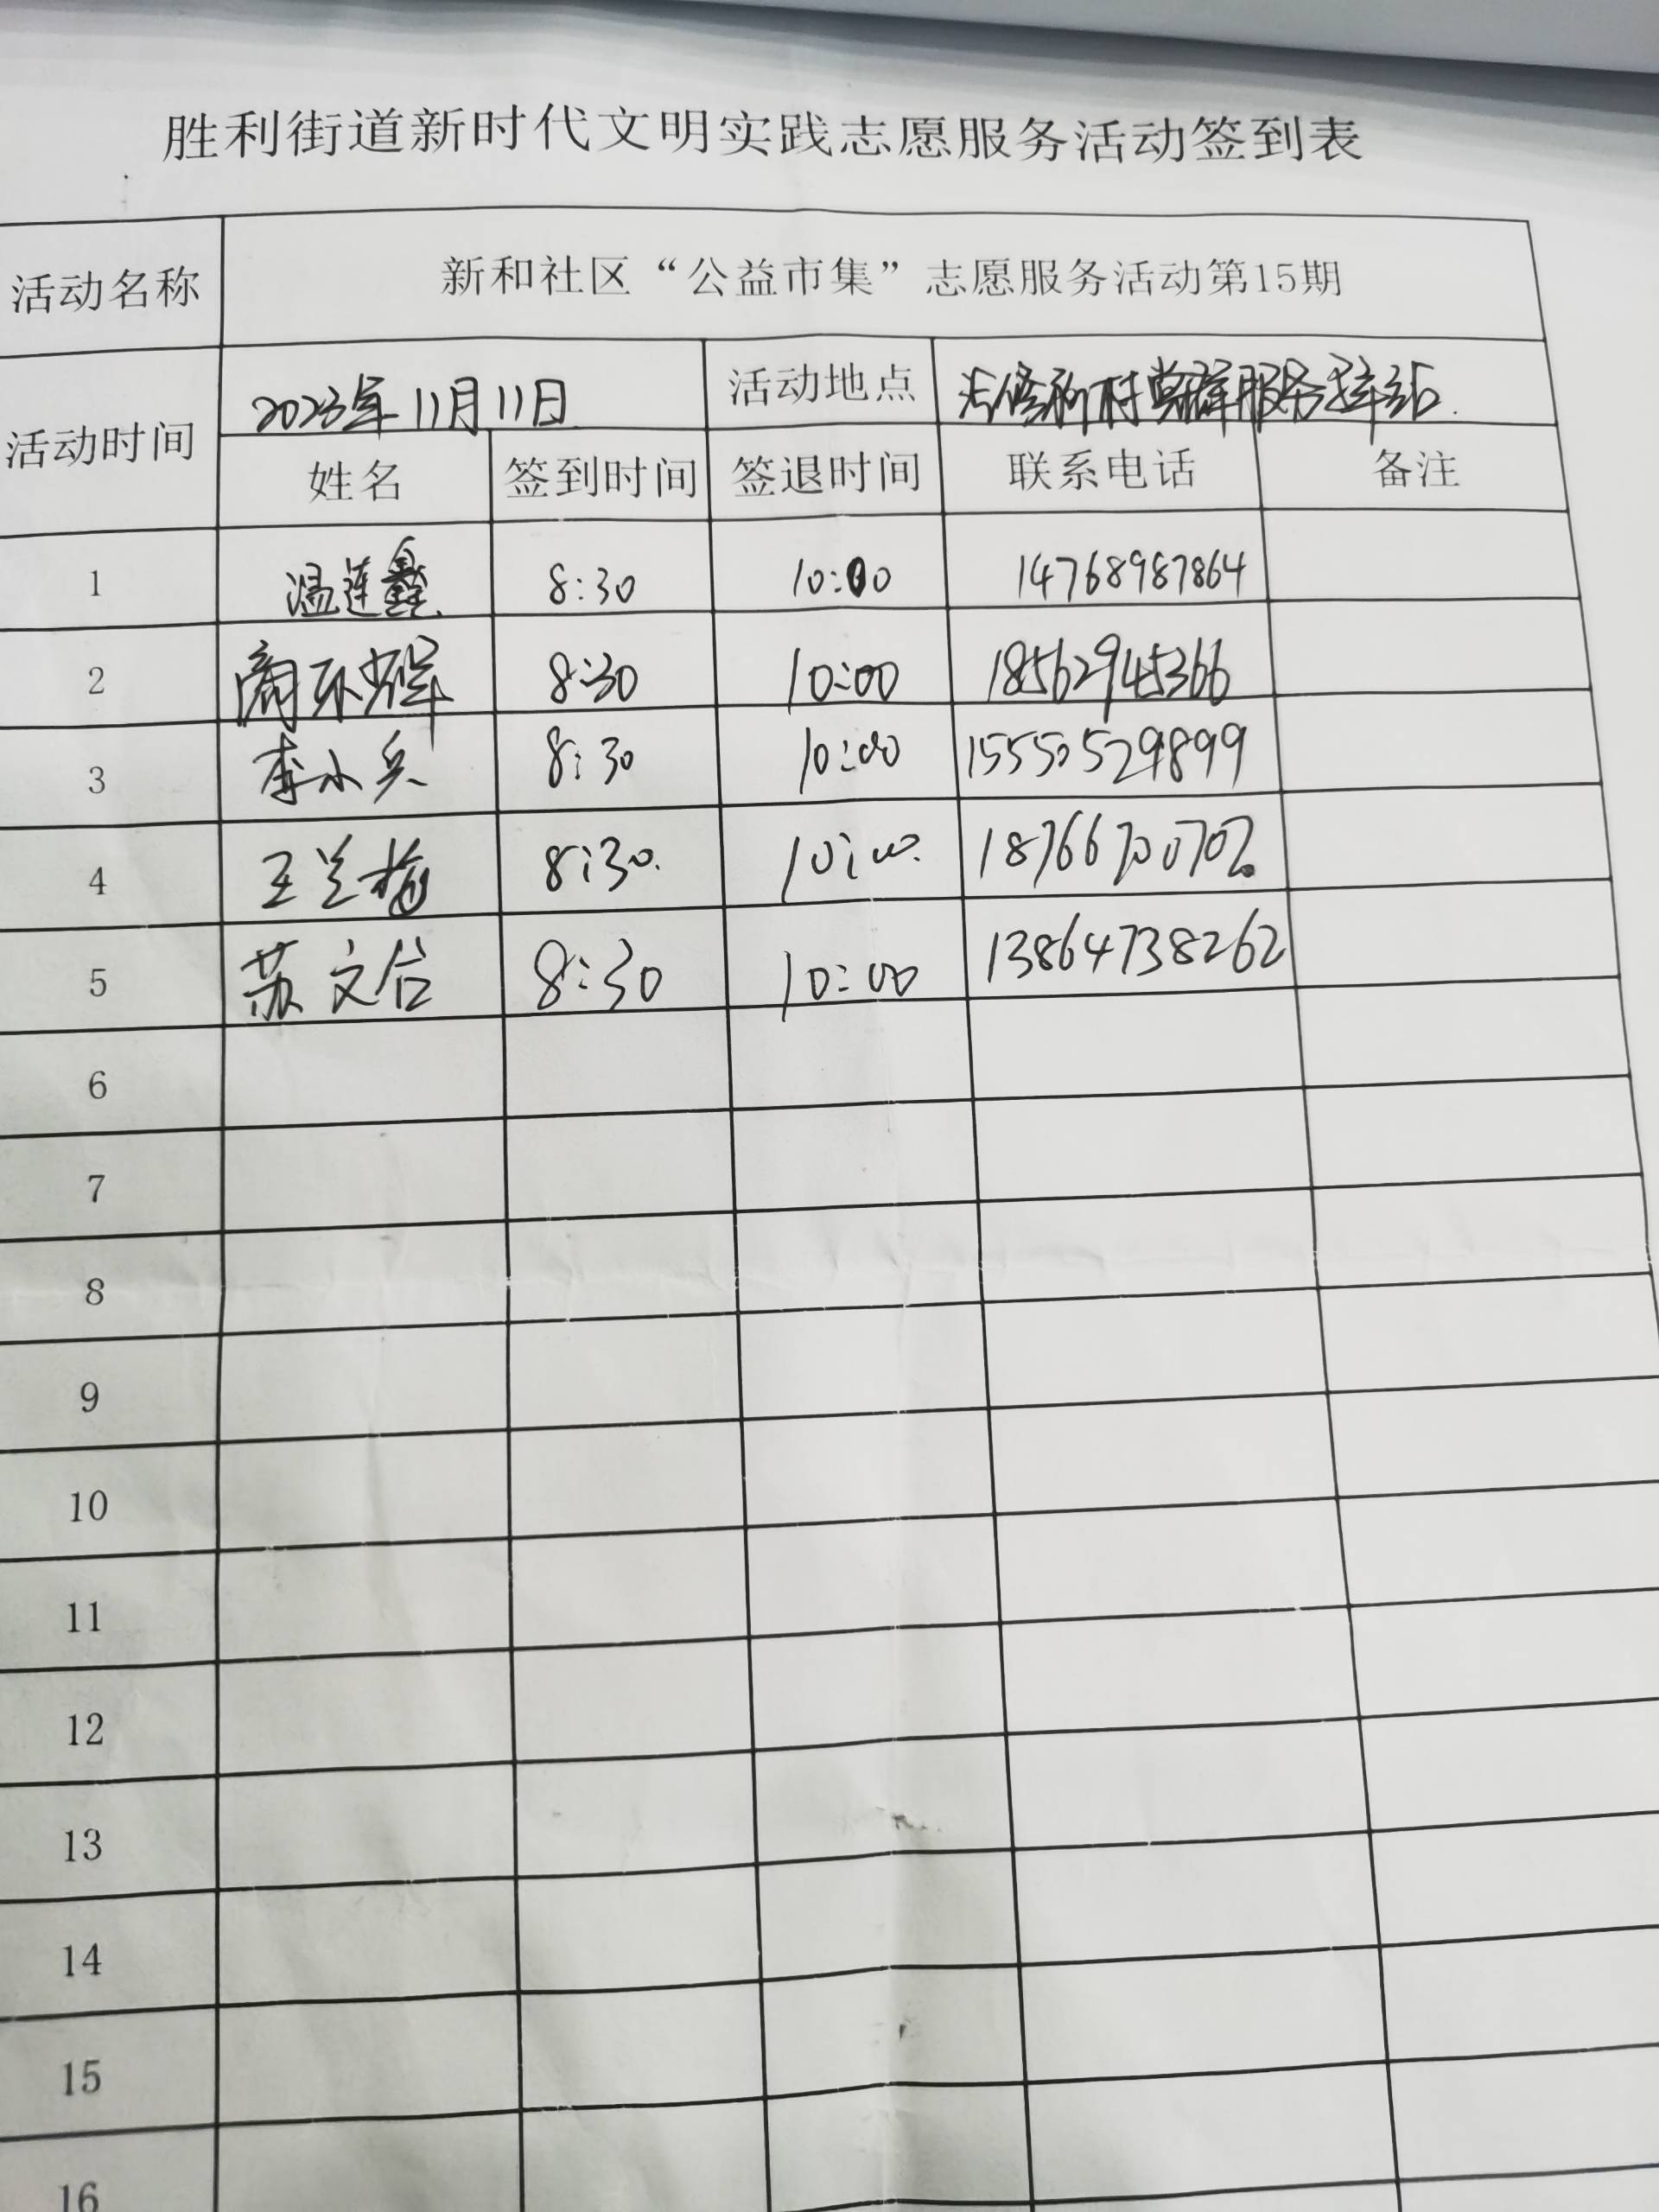 胜利街道新时代文明实践志愿服务活动签到表
活动名称 新和社区“公益市集”志愿服务活动第15期
活动时间 2023年11月11日 活动地点 新村党群服务驿站
姓名 签到时间 签退时间 联系电话 备注
1 温连鑫 8:30 10:00 14768987864
2 商环辉 8:30 10:00 18562945366
3 李小兵 8:30 10:00 15550529899
4 王兰梅 8:30 10:00 18766700702
5 苏文台 8:30 10:00 13864738262
6
7
8
9
10
11
12
13
14
15
16